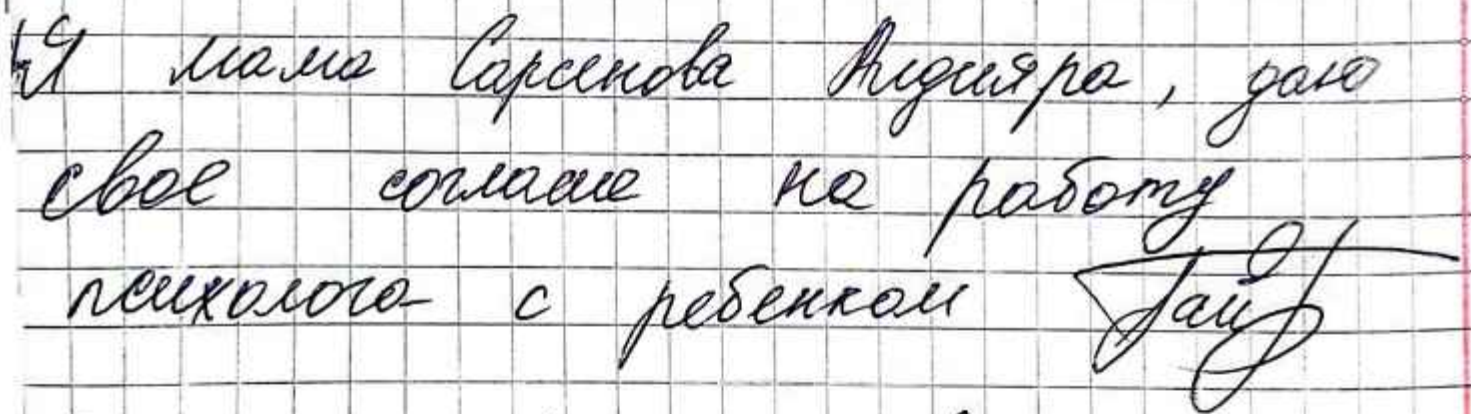 Я мама Сарсенова Алдияра, даю
свое согласие на работу
психолога с ребенком